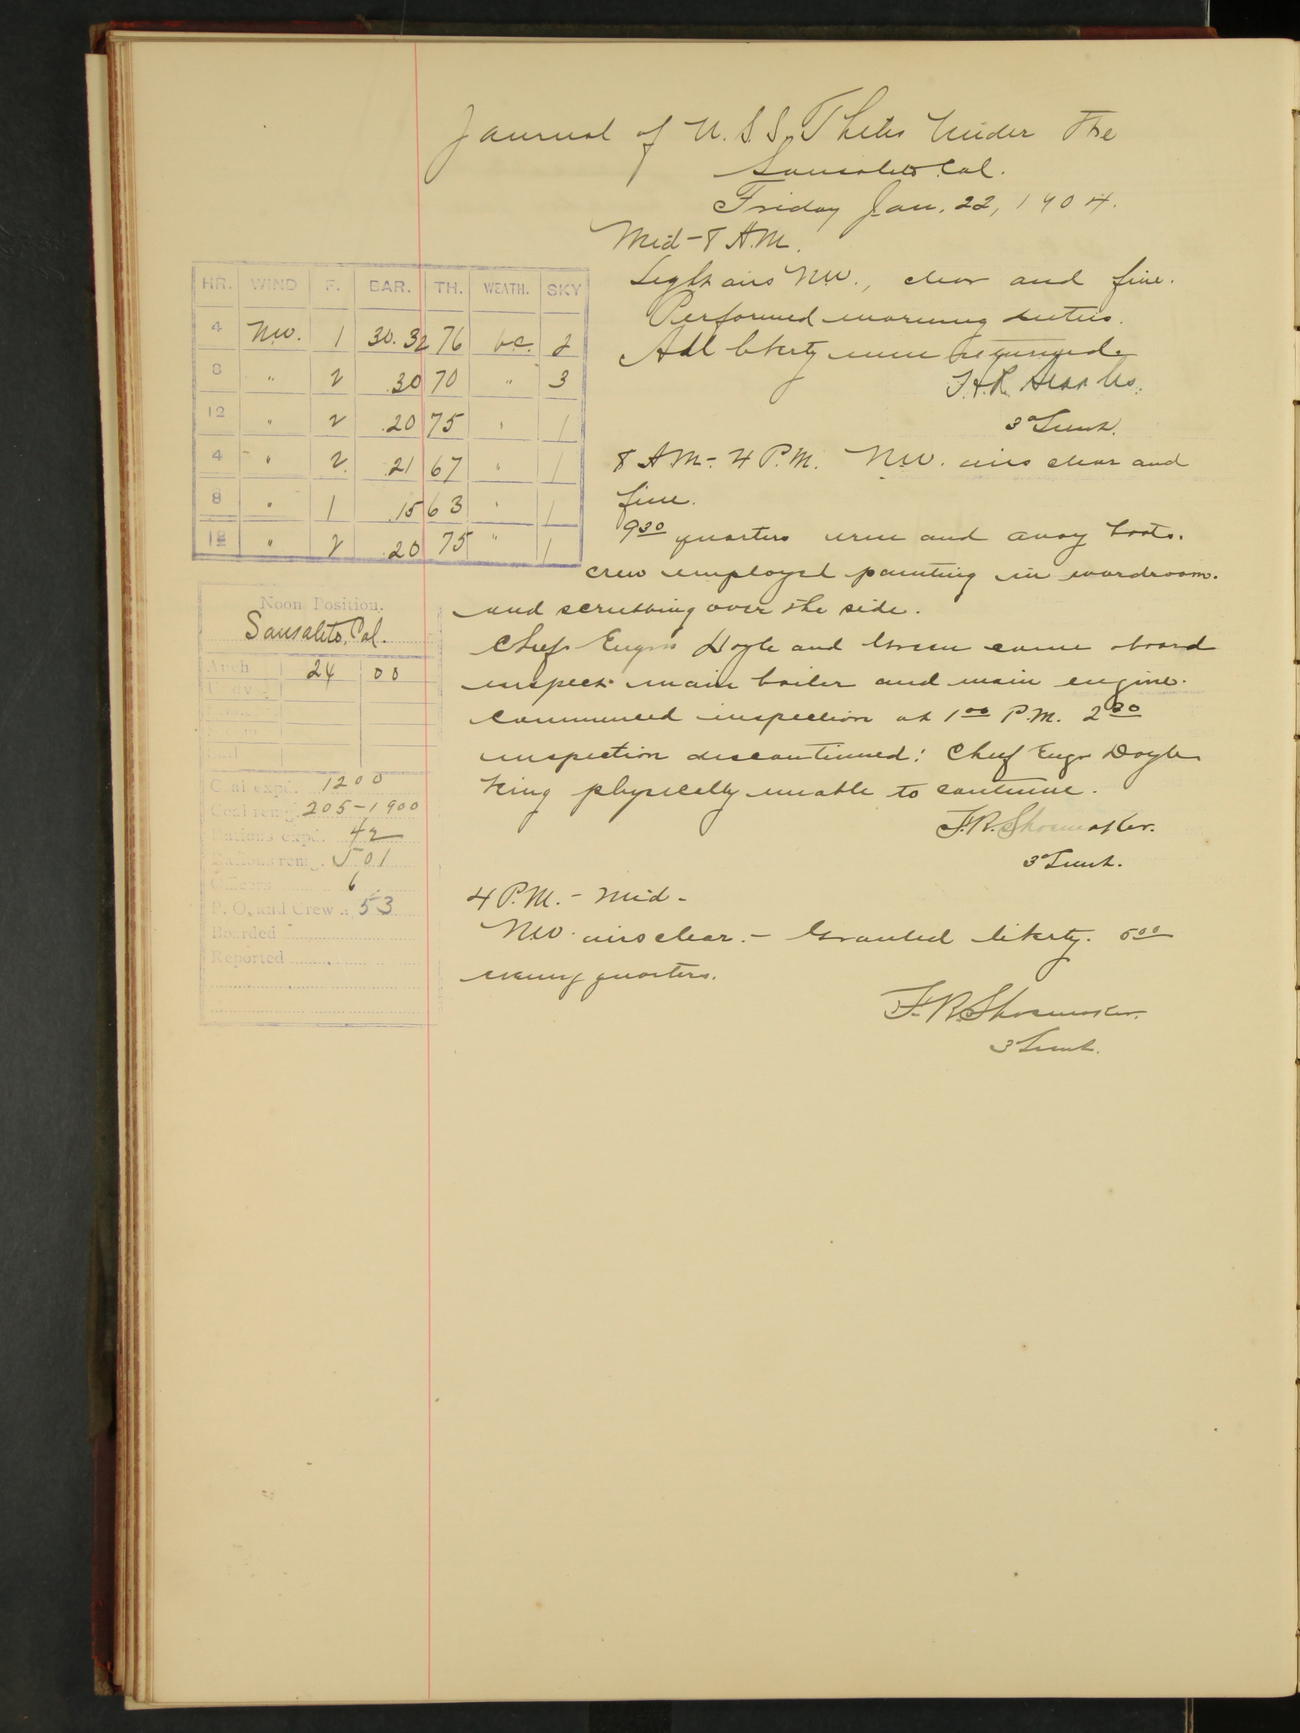 Journal of U.S.S. Thetis Under the
Sausalito Cal.
Friday Jan. 22, 1904.
Mid-8 A.M.
Light airs NW., clear and fine.
Performed morning duties.
All liberty men returned.
3d Lieut.
8 A.M.- 4 P.M. NW. airs clear and
fine.
930 quarters arm and away boats.
crew employed painting in wardroom.
and scrubbing over the side.
Chief Engrs Doyle and Green came aboard
inspect main boiler and main engine.
Commenced inspection at 1 00 P.M. 2 30
inspection discontinued: Chief Engr Doyle
being physically unable to continue.
F.R. Shoemaker.
3d Lieut.
4 P.M. - Mid -
NW. airs clear. - Granted liberty. 5 00
evening quarters.
F.R. Shoemaker.
3 Lieut.
HR. WIND F. BAR. TH. WEATH. SKY
4 NW. 1 30.32 76 bc. 2
8 " 2 .30 70 " 3
12 " 2 .20 75 " 1
4 " 2 .21 67 " 1
8 " 1 .15 63 " 1
12 " 2 .20 75 " 1
Noon Position.
Sausalito, Cal.
Anch 24 00
Coal expd. 1200
Coal remg. 205-1900
Rations expd. 42
Rations remg. 501
Officers 6
P. O. and Crew 53
Boarded
Reported